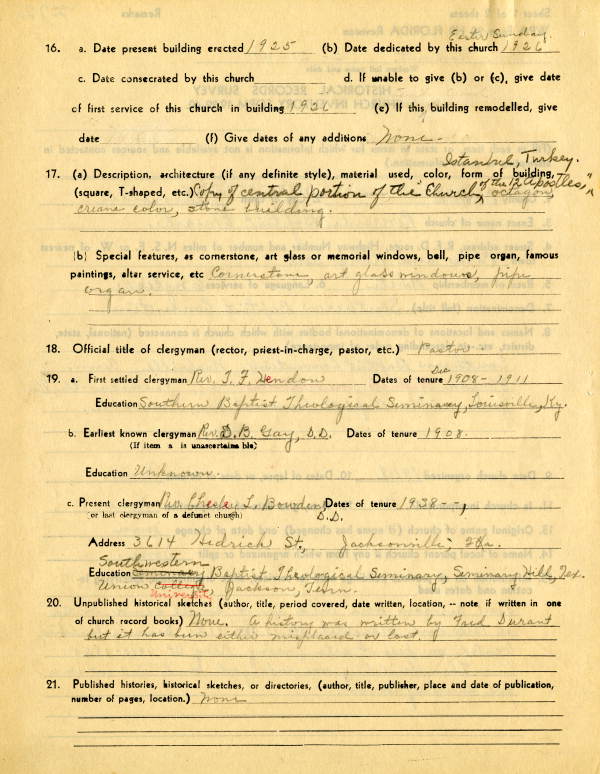 Easter Sunday.
16. a. Date present building erected 1925 (b) Date dedicated by this church 1926
c. Date consecrated by this church d. If unable to give (b) or (c), give date
of first service of this church in building 1926 (e) If this building remodelled, give
date (f) Give dates of any additions None -
Istanbul, Turkey.
17. (a) Description, architecture (if any definite style), material used, color, form of building,
(square, T-shaped, etc.) Copy of central portion of the "Church of the 12 Apostles," octagon,
creame color, stone building.
(b) Special features, as cornerstone, art glass or memorial windows, bell, pipe organ, famous
paintings, altar service, etc Cornerstone, art glass windows, pipe
organ.
18. Official title of clergyman (rector, priest-in-charge, pastor, etc.) Pastor -
19. a. First settled clergyman Rev. T. F. Hendon Dates of tenure Dec 1908 - 1911
Education Southern Baptist Theological Seminary, Louisville, Ky.
b. Earliest known clergyman Rev. D. B. Gay, D.D. Dates of tenure 1908.
(If item a is unascertainable)
Education Unknown.
c. Present clergyman Rev. Chesley L. Bowden, Dates of tenure 1938 - -,
(or last clergyman of a defunct church) D.D.
Address 3614 Hedrich St., Jacksonville, Fla.
Southwestern
Education Seminary Baptist Theological Seminary, Seminary Hill, Tex.
Union College, Jackson, Tenn.
University
20. Unpublished historical sketches (author, title, period covered, date written, location, -- note if written in one
of church record books) None. A history was written by Fred Durant
but it has been either misplaced or lost.
21. Published histories, historical sketches, or directories, (author, title, publisher, place and date of publication,
number of pages, location.) None